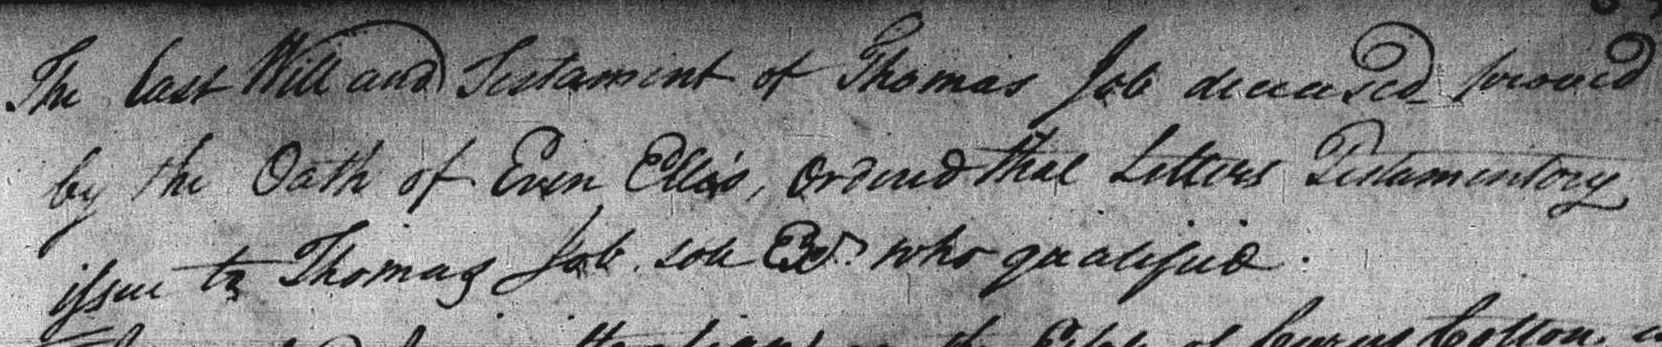 The last Will and Testament of Thomas Job deceased proved
by the Oath of Even Ellis, ordered that Letters Testamentory
issue to Thomas Job sole Exr. who qualified.
the of Cotton